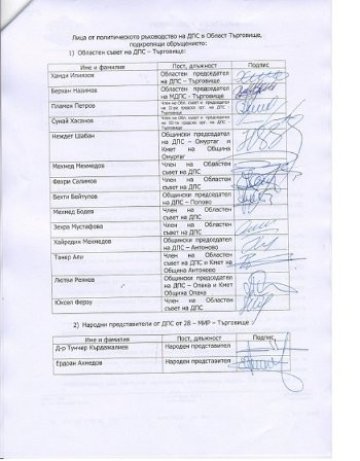 Лица от политическото ръководство на ДПС в Област Търговище,
подкрепящи обръщението:
1) Областен съвет на ДПС – Търговище:
Име и фамилия Пост, длъжност Подпис
Хамди Илиязов Областен председател
на ДПС – Търговище
Берхан Назимов Областен председател
на МДПС - Търговище
Пламен Петров Член на Обл. съвет и председател
Търговище
Сунай Хасанов Член на Обл. съвет и председател
Търговище
Неждет Шабан Общински председател
на ДПС – Омуртаг и
Кмет на Община
Омуртаг
Мехмед Мехмедов Член на Областен
съвет на ДПС
Фехри Салимов Член на Областен
съвет на ДПС
Вехти Бейтулов Общински председател
на ДПС – Попово
Мехмед Бодев Член на Областен
съвет на ДПС
Зехра Мустафова Член на Областен
съвет на ДПС
Хайредин Мехмедов Общински председател
на ДПС – Антоново
Танер Али Член на Областен
съвет на ДПС и Кмет на
Община Антоново
Лютви Реянов Общински председател
на ДПС – Опака и Кмет
Община Опака
Юксел Ферау Член на Областен
съвет на ДПС
2) Народни представители от ДПС от 28 – МИР – Търговище :
Име и фамилия Пост, длъжност Подпис
Д-р Тунчер Кърджалиев Народен представител
Ердоан Ахмедов Народен представител